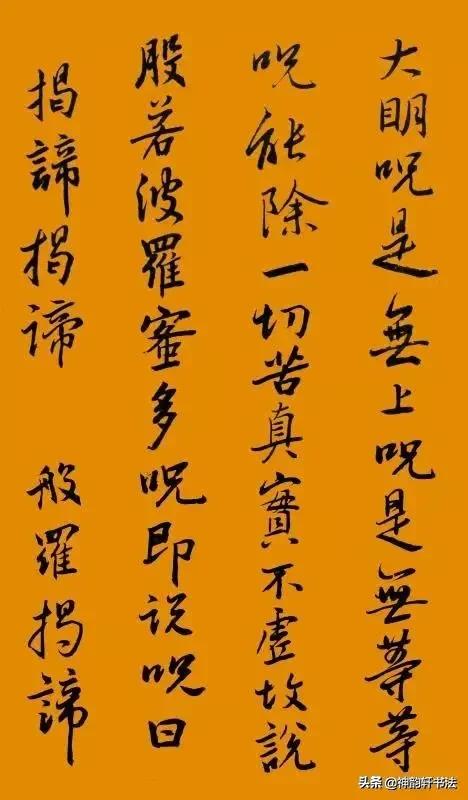 大明呪是無上呪是無等等
呪能除一切苦真實不虛故說
般若波羅蜜多呪即说呪曰
揭諦揭諦 般羅揭諦
头条 @神韵轩书法